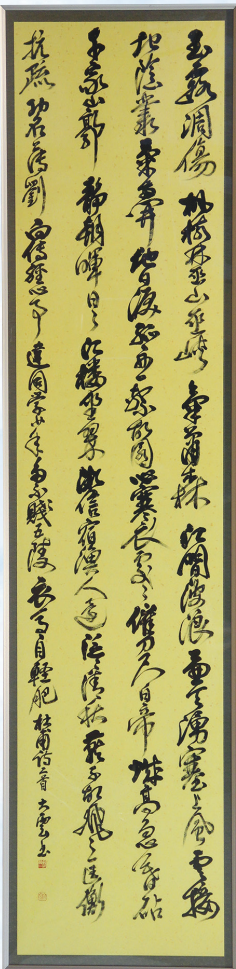 玉露凋傷楓樹林巫山巫峽氣蕭森江間波浪兼天湧塞上風雲接
地陰叢菊兩開他日淚孤舟一繫故園心寒衣處處催刀尺白帝城高急暮砧
千家山郭靜朝暉日日江樓坐翠微信宿漁人還泛泛清秋燕子故飛飛匡衡
抗疏功名薄劉向傳經心事違同學少年多不賤五陵衣馬自輕肥 杜甫詩二首 大雲書